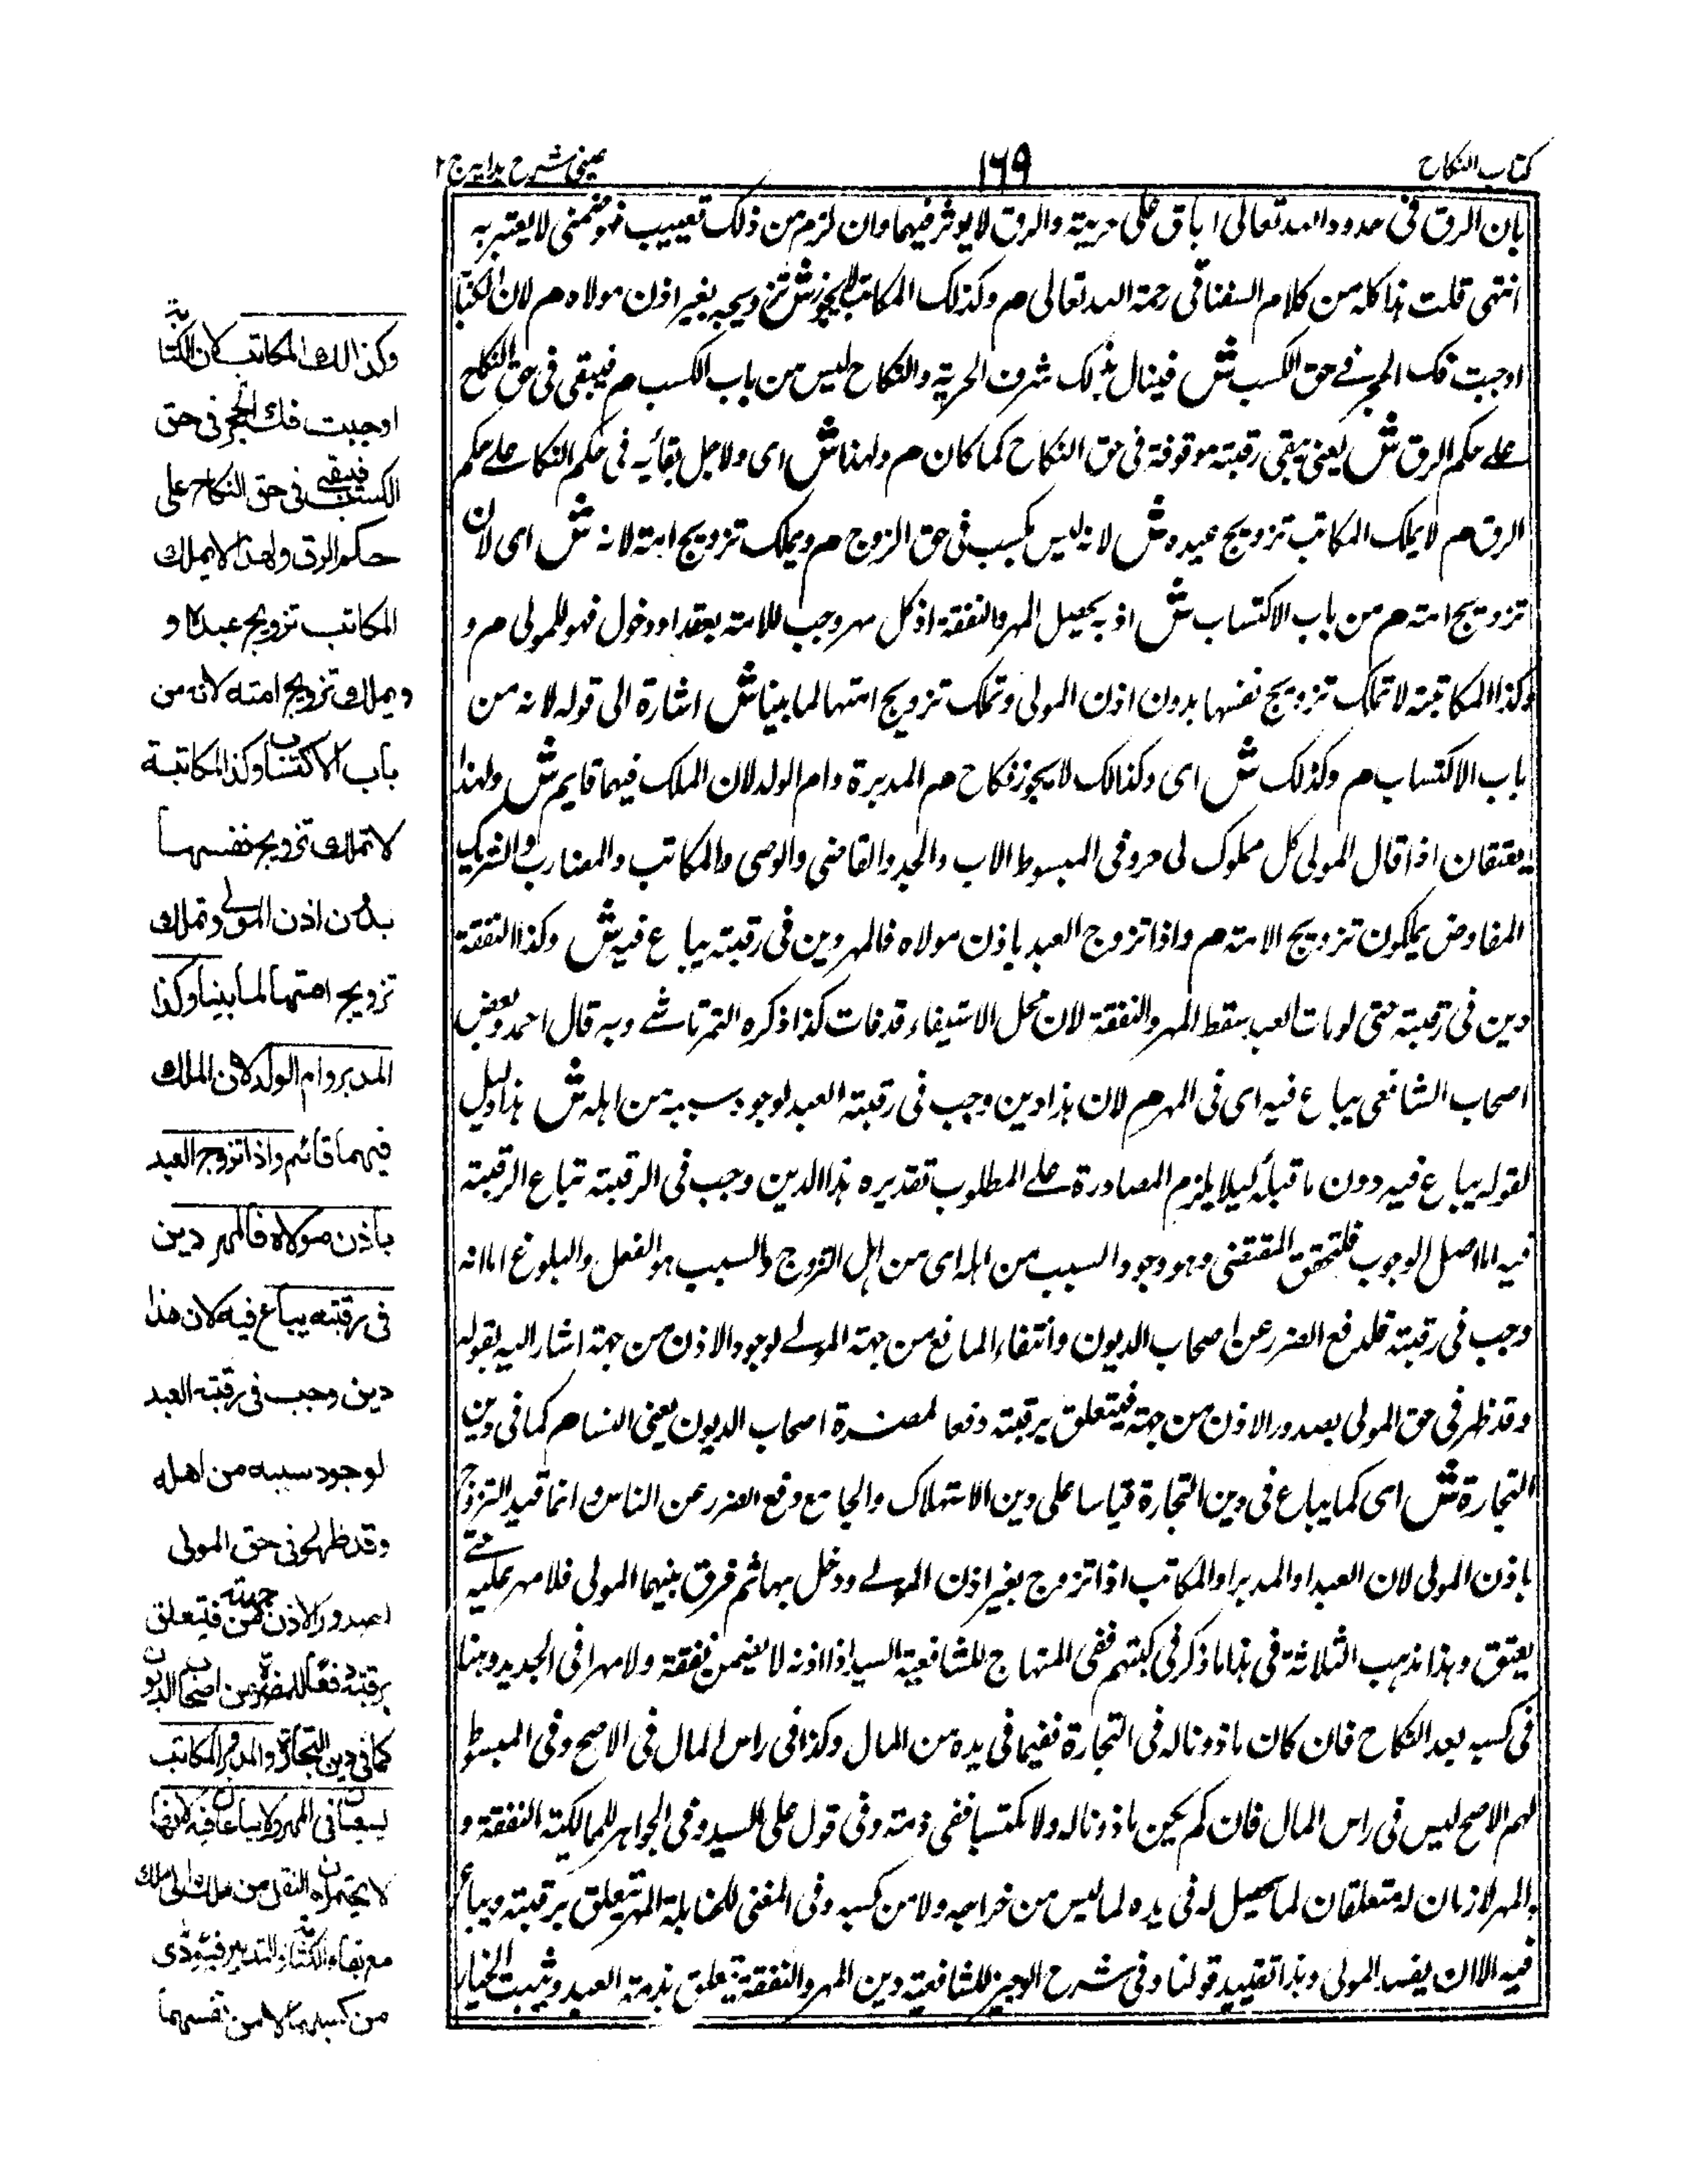 كتاب النكاح
١٦٩
عيني شرح هداية ج ٢
بان الرق في حدود الله تعالى باق على حريته والرق لا يوثر فيهما وان لزم من ذلك تعييب فهو ضمني لا يعتبر به
انتهى قلت هذا كله من كلام السغناقي رحمة الله تعالى م وكذلك المكاتب لا يجوز ش تزويجه بغير اذن مولاه م لان الكتابة
اوجبت فك الحجر في حق الكسب ش فينال بذلك شرف الحرية والنكاح ليس من باب الكسب م فيبقى في حق النكاح
على حكم الرق ش يعني يبقى رقبته موقوفة في حق النكاح كما كان م ولهذا ش اى ولاجل بقائه في حكم النكاح على حكم
الرق م لا يملك المكاتب تزويج عبده ش لانه ليس بكسب في حق الزوج م ويملك تزويج امته لانه ش اى لان
تزويج امته م من باب الاكتساب ش اذ به يحصل المهر والنفقة اذ كل مهر وجب للامة بعقد او دخول فهو للمولى م و
وكذا المكاتبة لا تملك تزويج نفسها بدون اذن المولى وتملك تزويج امتها لما بينا ش اشارة الى قوله لانه من
باب الاكتساب م وكذلك ش اى وكذلك لا يجوز نكاح م المدبرة وام الولد لان الملك فيهما قايم ش ولهذا
يعتقان اذا قال المولى كل مملوك لى حر وفي المبسوط الاب والجد والقاضي والوصي والمكاتب والمضارب والشريك
المفاوض يملكون تزويج الامة م واذا تزوج العبد باذن مولاه فالمهر دين في رقبته يباع فيه ش وكذا النفقة
دين في رقبته حتى لو مات العبد سقط المهر والنفقة لان محل الاستيفاء قد فات كذا ذكره التمرتاشي وبه قال احمد وبعض
اصحاب الشافعي يباع فيه اى في المهر م لان هذا دين وجب في رقبة العبد لوجود سببه من اهله ش هذا دليل
لقوله يباع فيه دون ما قبله كيلا يلزم المصادرة على المطلوب تقديره هذا الدين وجب في الرقبة تباع الرقبة
فيه اما اصل الوجوب فلتحقق المقتضي وهو وجود السبب من اهله اى من اهل التزوج والسبب هو الفعل والبلوغ اما انه
وجب في رقبته فلدفع الضرر عن اصحاب الديون وانتفاء المانع من جهة المولى لوجود الاذن من جهة اشار اليه بقوله
وقد ظهر في حق المولى بصدور الاذن من جهته فيتعلق برقبته دفعا لمضرة اصحاب الديون يعني النساء م كما في دين
التجارة ش اى كما يباع في دين التجارة قياسا على دين الاستهلاك والجامع دفع الضرر عن الناس وانما قيد التزوج
باذن المولى لان العبد او المدبر او المكاتب اذا تزوج بغير اذن المولى ودخل بها ثم فرق بينهما المولى فلا مهر عليه حتى
يعتق وهذا مذهب الثلاثة في هذا ما ذكر في كتبهم ففي المنهاج للشافعية السيد اذا اذنه لا يضمن نفقة ولا مهرا في الجديد وهنا
في كسبه بعد النكاح فان كان ماذونا له في التجارة ففيما في يده من المال وكذا في راس المال في الاصح وفي المبسوط
لهم الاصح ليس في راس المال فان لم يكن ماذونا له ولا مكتسبا ففي ذمته وفي قول على السيد وفي الجواهر للمالكية النفقة و
المهر لازمان له متعلقان لما يحصل له في يده لما ليس من خراجه ولا من كسبه وفي المغني للحنابلة المهر يتعلق برقبته ويباع
فيه الا ان يفسد المولى وهذا تقييد قولنا وفي شرح الوجيز للشافعية دين المهر والنفقة يتعلق بذمة العبد ويثبت الخيار
وكذلك المكاتب لان الكتابة
اوجبت فك الحجر في حق
الكسب فيبقى في حق النكاح على
حكم الرق ولهذا لا يملك
المكاتب تزويج عبده و
ويملك تزويج امته لانه من
باب الاكتساب وكذا المكاتبة
لا تملك تزويج نفسها
بدون اذن المولى وتملك
تزويج امتها لما بينا وكذا
المدبر وام الولد لان الملك
فيهما قائم واذا تزوج العبد
باذن مولاه فالمهر دين
في رقبته يباع فيه لان هذا
دين وجب في رقبة العبد
لوجود سببه من اهله
وقد ظهر في حق المولى
لصدور الاذن من جهته فيتعلق
برقبته دفعا للمضرة عن اصحاب الديون
كما في دين التجارة والمدبر والمكاتب
يسعيان في المهر ولا يباعان فيه لانهما
لا يحتملان النقل من ملك الى ملك
مع بقاء الكتابة والتدبير فيؤدى
من كسبهما لا من نفسهما